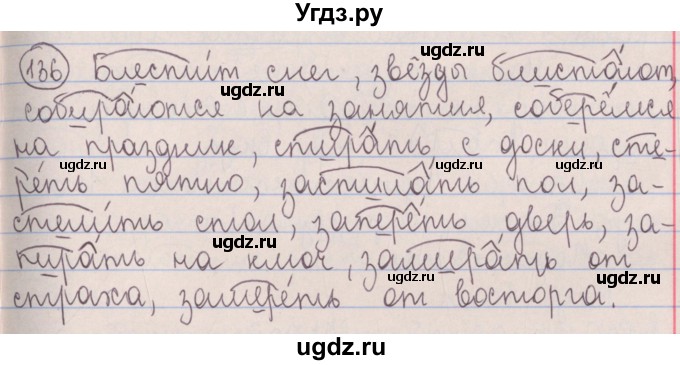 Угдз.ру
136 Блестит снег, звёзды блистают,
собираются на занятия, соберёмся
на праздник, стирать с доски, сте-
реть пятно, застилать пол, за-
стелить стол, запереть дверь, за-
пирать на ключ, замирать от
страха, замереть от восторга.
ugdz.ru
ugdz.ru
ugdz.ru
ugdz.ru
ugdz.ru
ugdz.ru
ugdz.ru
ugdz.ru
ugdz.ru
ugdz.ru
ugdz.ru